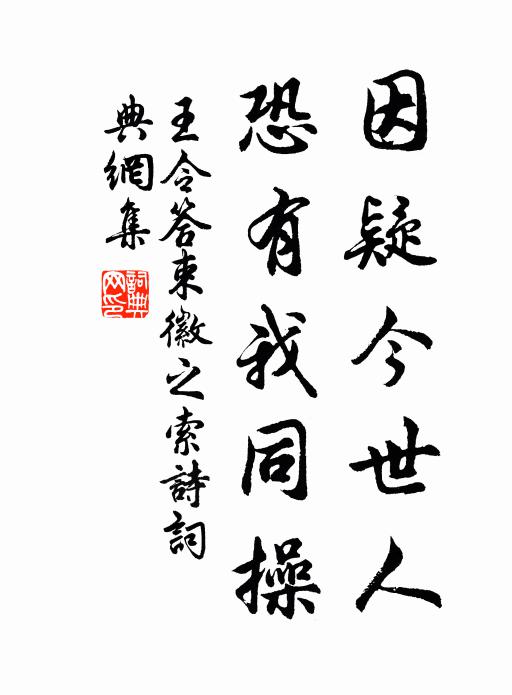 因疑今世人
恐有我同操
王令答束徽之索詩詞
典網集
詞典網印